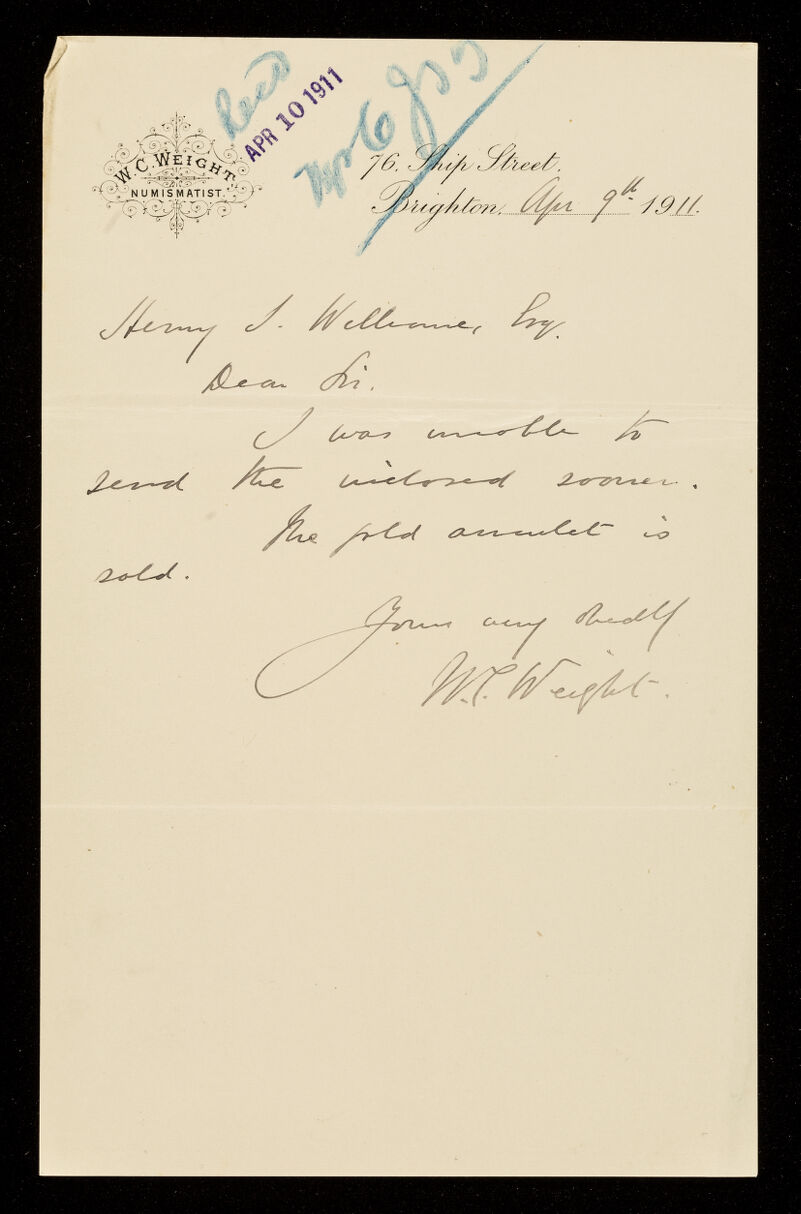 Recd
APR 10 1911
W. C. WEIGHT.
NUMISMATIST.
76, Ship Street,
Brighton, Apr 9th 1911.
Henry S. Wellcome, Esq.
Dear Sir.
I was unable to
send the inclosed sooner.
The gold amulet is
sold.
Yours very obedly
W.C. Weight.